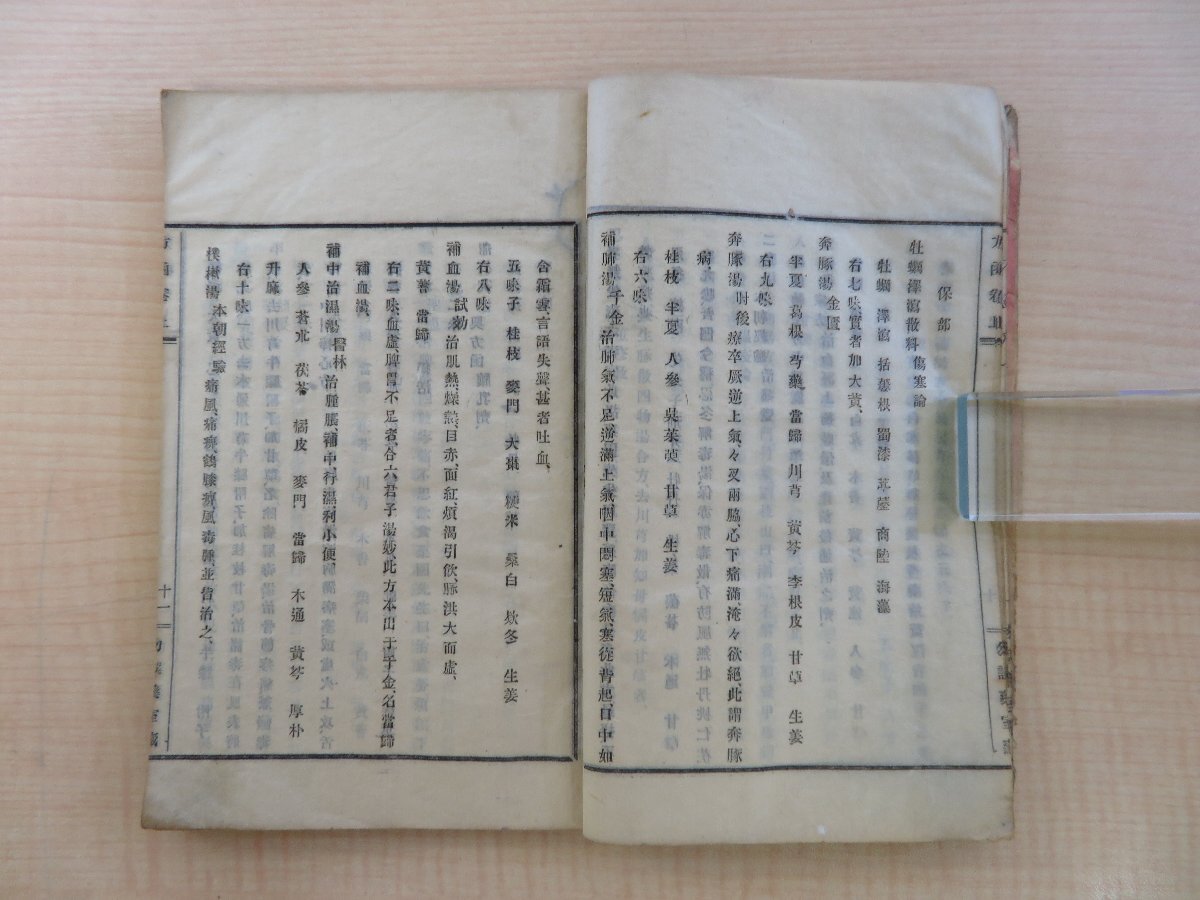 保部
牡蠣澤瀉散料 傷寒論
牡蠣 澤瀉 括蔞根 蜀漆 葶藶 商陸 海藻
右七味、實者加大黃、
奔豚湯 金匱
半夏 葛根 芍藥 當歸 川芎 黃芩 李根皮 甘草 生姜
右九味
奔豚湯 肘後 療卒厥逆上氣、々又兩脇、心下痛滿淹々欲絕、此謂奔豚
病、
桂枝 半夏 人參 吳茱萸 甘草 生姜
右六味
補肺湯 千金 治肺氣不足、逆滿上氣、咽中悶塞、短氣、寒從背起、口中如
含霜雪、言語失聲、甚者吐血、
五味子 桂枝 麥門 大棗 粳米 桑白 欵冬 生姜
右八味
補血湯 試効 治肌熱、燥熱、目赤、面紅、煩渴引飲、脈洪大而虛、
黃耆 當歸
右二味、血虛脾胃不足者、合六君子湯妙、此方本出于千金、名當歸
補血湯、
補中治濕湯 醫林 治腫脹、補中、行濕、利小便
人參 蒼朮 茯苓 橘皮 麥門 當歸 木通 黃芩 厚朴
升麻
右十味
樸樕湯 本朝經驗 痛風、痛痺、鶴膝、癘風、毒腫、並皆治之、
十一